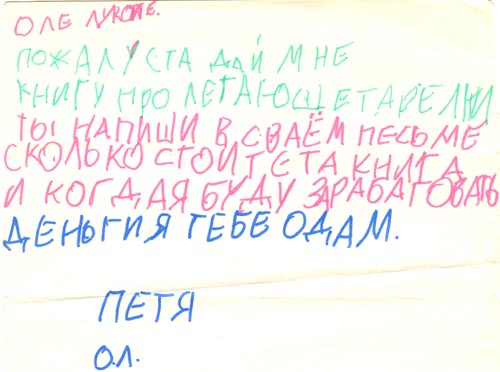 ОЛЕ ЛУКОЙЕ.
ПОЖАЛУСТА ДАЙ МНЕ
КНИГУ ПРО ЛЕТАЮЩЕ ТАРЕЛКИ
ТЫ НАПИШИ В СВАЁМ ПЕСЬМЕ
СКОЛЬКО СТОИТ ЕТА КНИГА
И КОГДА Я БУДУ ЗАРАБАТОВАТЬ
ДЕНЬГИ Я ТЕБЕ ОДАМ.
ПЕТЯ
О.Л.